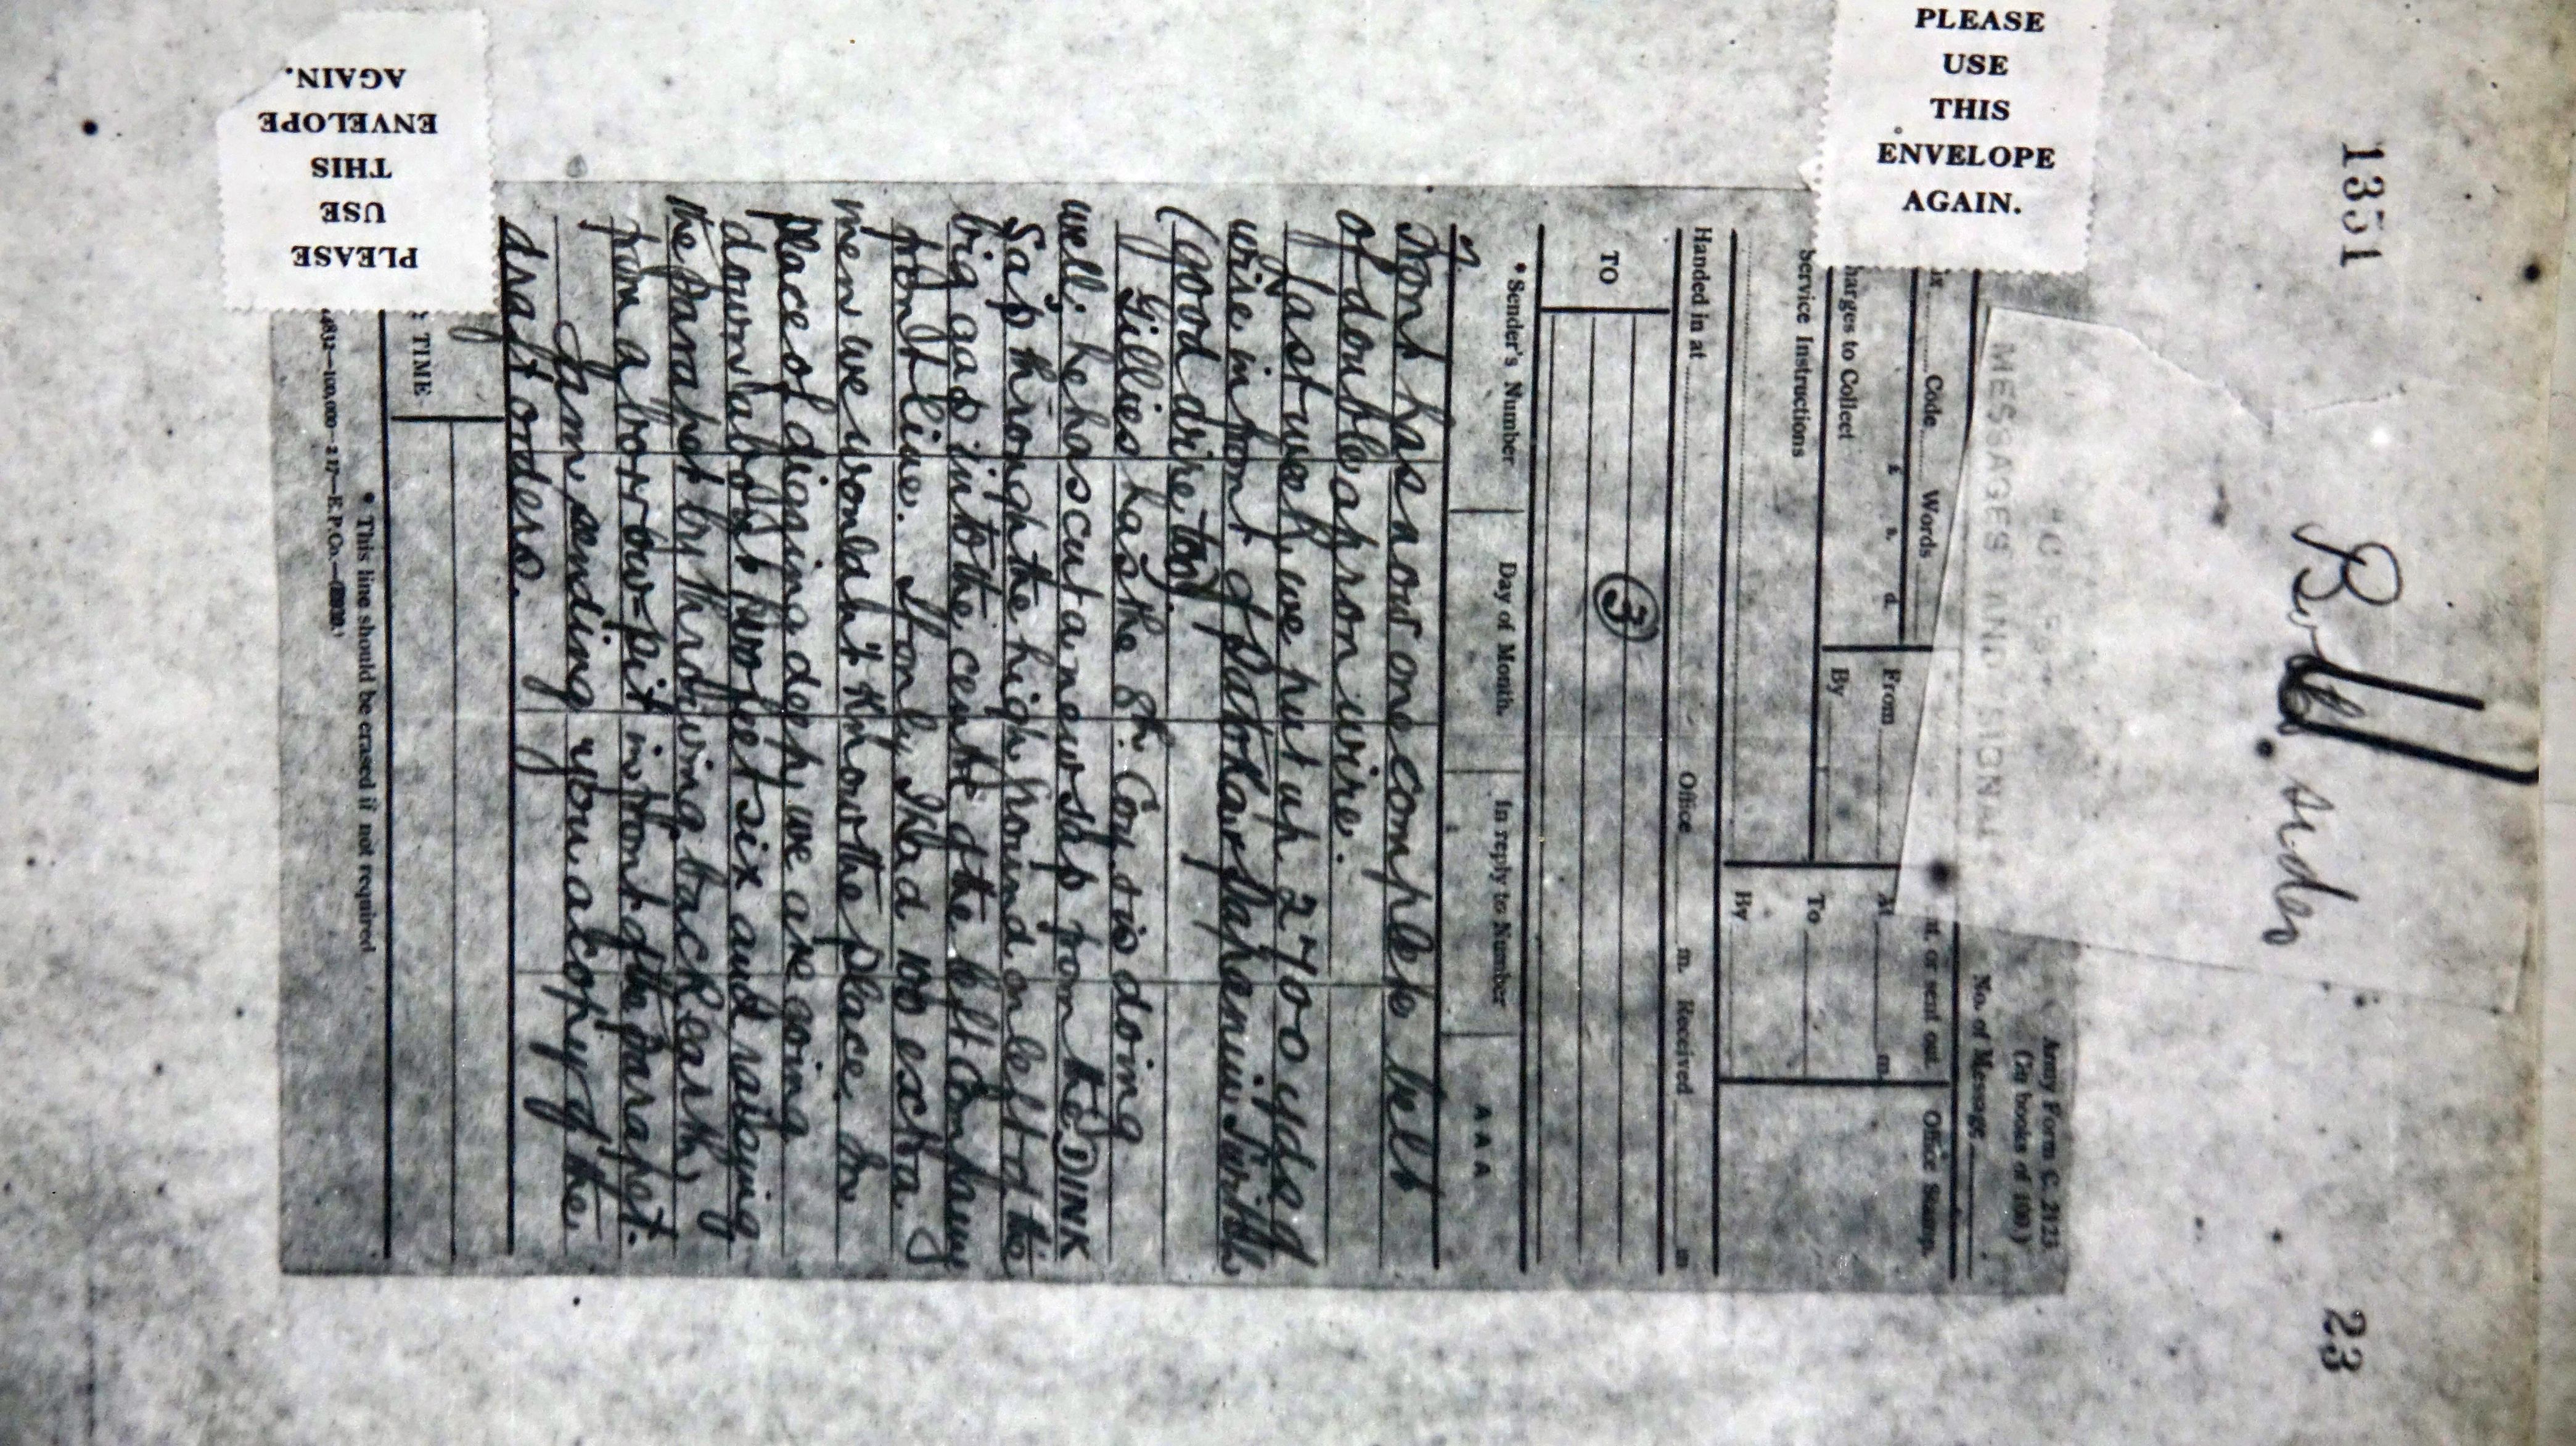 1351
23
Both sides
PLEASE
USE
THIS
ENVELOPE
AGAIN.
PLEASE
USE
THIS
ENVELOPE
AGAIN.
MESSAGES AND SIGNAL
Army Form C. 2123
(In books of 100.)
No. of Message
Code Words
£ s. d.
harges to Collect
Service Instructions
From
By
nt, or sent out
At m.
To
By
Office Stamp.
Handed in at Office m. Received m
TO
③
* Sender's Number Day of Month. In reply to Number A A A
front has now one complete belt
of double apron wire.
Last week we put up 2700 yds of
wire in front of
(good wire too).
Gillies has the 8th. Coy & is doing
well; he has cut a new sap from the DINK
Sap through the high ground on left to the
big gap into the centre of the left company
front line. If only I had 100 extra
men we wouldn't know the place. In
place of digging deeply we are going
down about two feet six and raising
the parapet by throwing back earth
from a borrow-pit in front of the parapet.
I am sending you a copy of the
draft orders.
TIME
* This line should be erased if not required
4832—100,000—2 17—E.P.Co.—